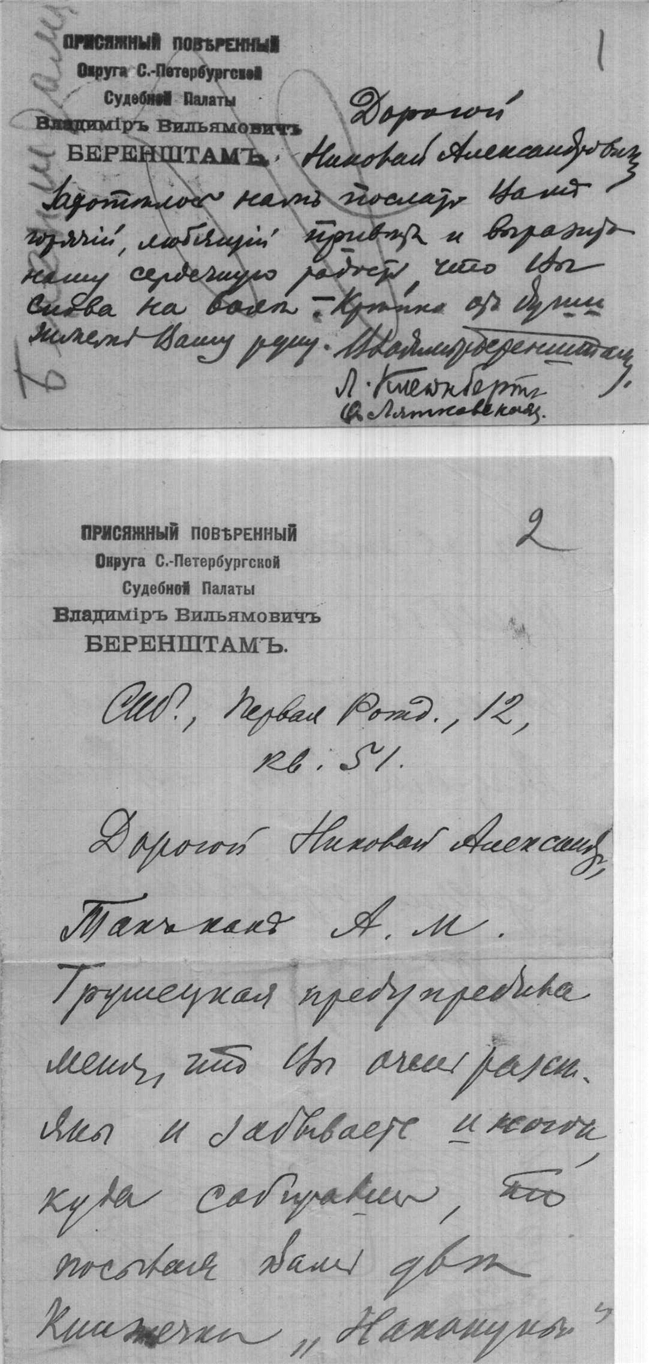 1
ПРИСЯЖНЫЙ ПОВѢРЕННЫЙ
Округа С.-Петербургской
Судебной Палаты
Владиміръ Вильямовичъ
БЕРЕНШТАМЪ.
Дорогой
Николай Александровичъ,
Захотѣлось намъ послать Вамъ
горячій, любящій привѣтъ и выразить
нашу сердечную радость, что Вы
снова на волѣ. – Крѣпко отъ души
жмемъ Вашу руку.
Л. Клейнбортъ
2
ПРИСЯЖНЫЙ ПОВѢРЕННЫЙ
Округа С.-Петербургской
Судебной Палаты
Владиміръ Вильямовичъ
БЕРЕНШТАМЪ.
Спб., Первая Рожд., 12,
кв. 51.
Дорогой Николай Александр.,
Такъ какъ А. М.
Грушецкая предупредила
меня, что Вы очень разсѣ-
яны и забываете иногда,
куда собирались, то
посылая Вамъ двѣ
книжечки „Наканунѣ“